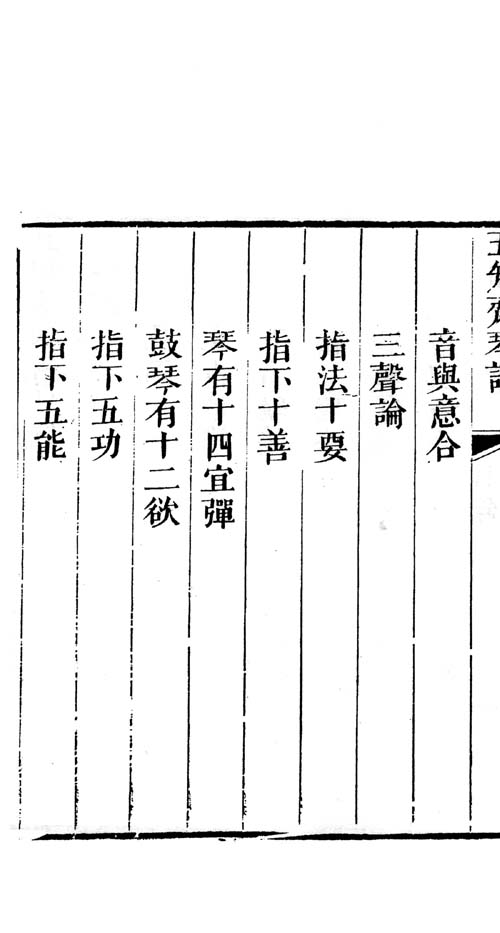 五知齋琴譜
音與意合
三聲論
指法十要
指下十善
琴有十四宜彈
鼓琴有十二欲
指下五功
指下五能